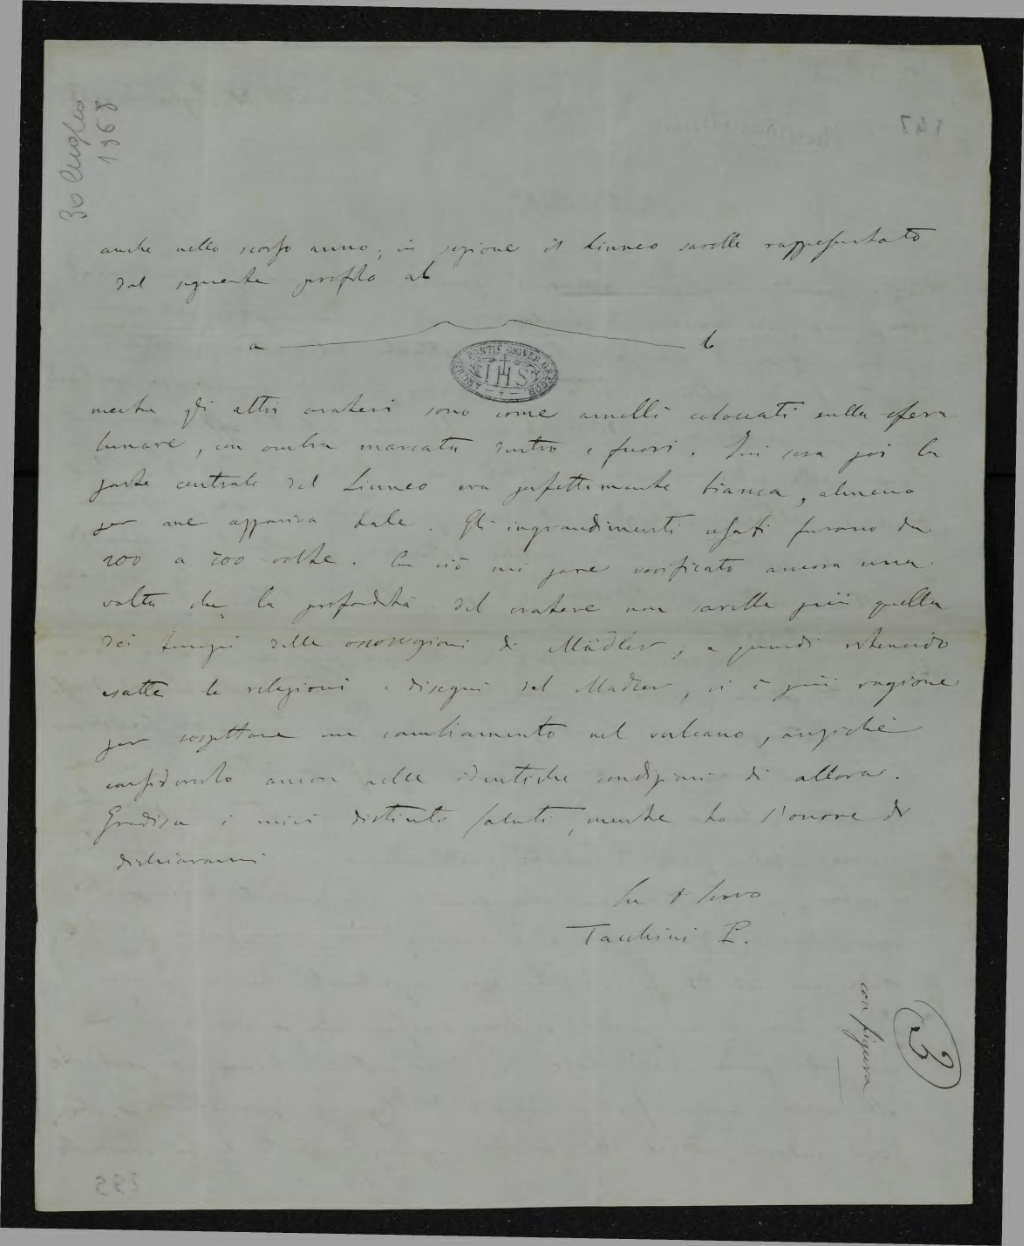 30 Luglio
1868
anche nello scorso anno; in sezione il Linneo sarebbe rappresentato
dal seguente profilo ab
a b
ARCHIV PONTIF UNIVER GREGOR
IHS
mentre gli altri crateri sono come anelli collocati sulla sfera
lunare, con ombra marcata dentro e fuori. Jeri sera poi la
parte centrale del Linneo era perfettamente bianca, almeno
per me appariva tale. Gli ingrandimenti usati furono da
200 a 500 volte. Con ciò mi pare verificato ancora una
volta che la profondità del cratere non sarebbe più quella
dei tempi delle osservazioni di Mädler, e quindi ritenendo
esatte le relazioni e disegni del Mädler, vi è più ragione
per sospettare un cambiamento nel vulcano, anziché
considerarlo ancora nelle identiche condizioni di allora.
Gradisca i miei distinti saluti, mentre ho l'onore di
dichiararmi
Servo
Tacchini P.
3
con figura